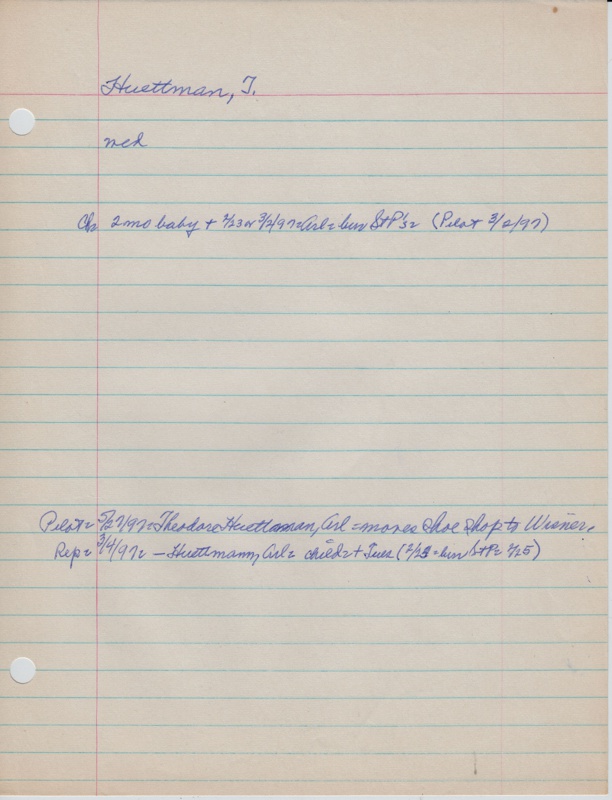 Huettman, T.
med
Ch 2 mo baby + 2/23 or 3/2/97 = Arl = bur St P's = (Pilot 3/2/97)
Pilot = 5/27/97 = Theodore Huettman, Arl = moves Shoe Shop to Wisner.
Rep = 3/4/97 = - Huettmann, Arl = child = + Tues (2/23 = bur St P = 2/25)